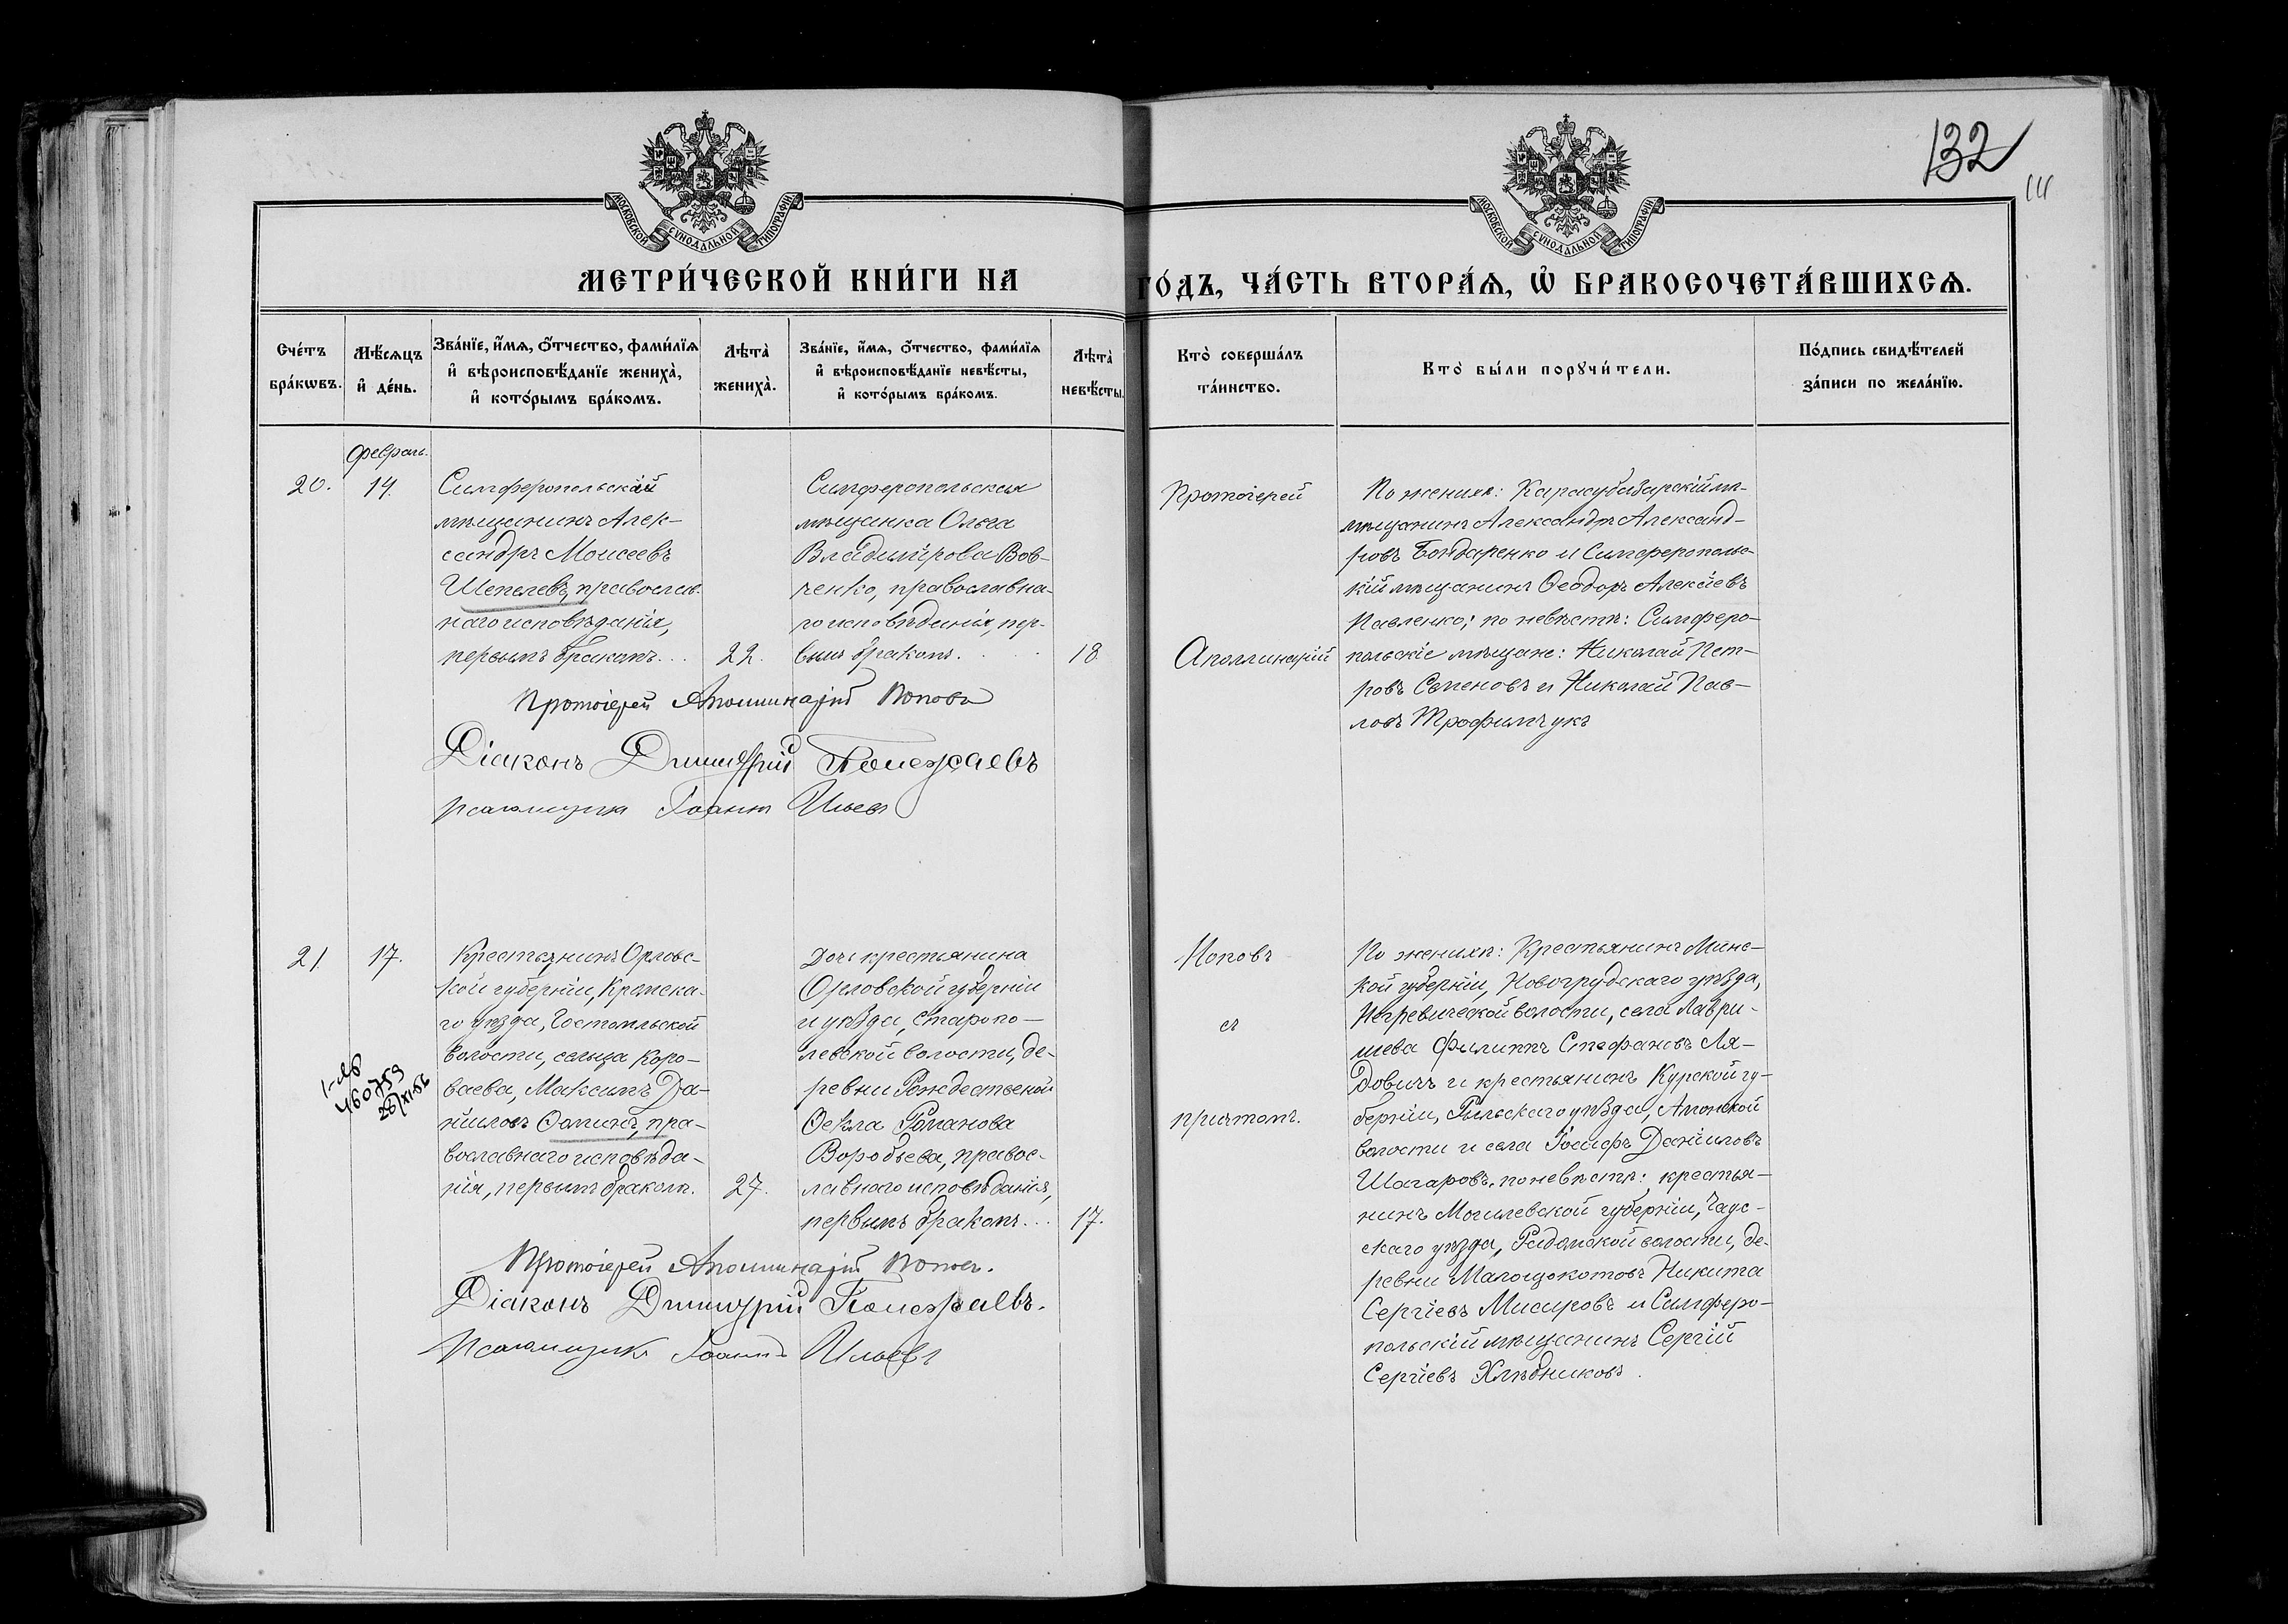 132
111
МОСКОВСКОЙ СѴНОДАЛЬНОЙ ТИПОГРАФІИ
МОСКОВСКОЙ СѴНОДАЛЬНОЙ ТИПОГРАФІИ
МЕТРИ́ЧЕСКОЙ КНИ́ГИ НА ГО́ДЪ, ЧА́СТЬ ВТОРА́Ѧ, Ѽ БРАКОСОЧЕТА́ВШИХСѦ.
Сче́тъ
бра́кѡвъ.
Мѣ́сяцъ
и҆ де́нь.
Зва́нїе, и҆́мѧ, ѻ҆́тчество, фами́лїѧ
и҆ вѣроисповѣ́данїе жениха̀,
и҆ кото́рымъ бра́комъ.
Лѣта̀
жениха̀.
Зва́нїе, и҆́мѧ, ѻ҆́тчество, фами́лїѧ
и҆ вѣроисповѣ́данїе невѣ́сты,
и҆ кото́рымъ бра́комъ.
Лѣта̀
невѣ́сты.
Кто̀ соверша́лъ
та́инство.
Кто̀ бы́ли порꙋчи́тели.
По́дпись свидѣ́телей
за́писи по жела́нїю.
Февраль.
20.
14.
Симферопольскій
мѣщанинъ Алек-
сандръ Моисеевъ
Шепелевъ, православ-
наго исповѣданія,
первымъ бракомъ...
22.
Симферопольская
мѣщанка Ольга
Владимірова Вов-
ченко, православна-
го исповѣданія, пер-
вымъ бракомъ.
18
Протоіерей
Аполлинарій
По женихѣ: Карасубазарскій мѣ-
мѣщанинъ Александръ Александ-
ровъ Бондаренко и Симферополь-
кій мѣщанинъ Ѳеодоръ Алексѣевъ
Павленко; по невѣстѣ: Симферо-
польскіе мѣщане: Николай Пет-
ровъ Семеновъ и Николай Пав-
ловъ Трофимчукъ
Протоіерей Аполлинарій Поповъ
Діаконъ Димитрій
Псаломщикъ Іоаннъ
21.
17.
1-ЯБ
460759
28/XI-56
Крестьянинъ Орловс-
кой губерніи, Кромска-
го уѣзда, Гостомльской
волости, сельца Коро-
ваева, Максимъ Да-
ніиловъ Ѳоминъ, пра-
вославнаго исповѣда-
нія, первымъ бракомъ.
27.
Дочь крестьянина
Орловской губерніи
и уѣзда, Старопо-
левской волости, де-
ревни Рождественской
Ѳекла Романова
Воробьева, правос-
лавнаго исповѣданія,
первымъ бракомъ...
17.
Поповъ
съ
причтомъ.
По женихѣ: Крестьянинъ Минс-
кой губерніи, Новогрудскаго уѣзда,
Негневичской волости, села Лаври-
шева Филиппъ Стефановъ Ля-
довичъ и крестьянинъ Курской гу-
берніи, Рыльскаго уѣзда, Амонской
волости и села Іосифъ Даніиловъ
Шагаровъ, по невѣстѣ: крестья-
нинъ Могилевской губерніи, Чаус-
скаго уѣзда, Радомской волости, де-
ревни Никита
Сергіевъ Мисировъ и Симферо-
польскій мѣщанинъ Сергій
Сергіевъ Хлѣбниковъ.
Протоіерей Аполлинарій Поповъ.
Діаконъ Димитрій
Псаломщикъ Іоаннъ